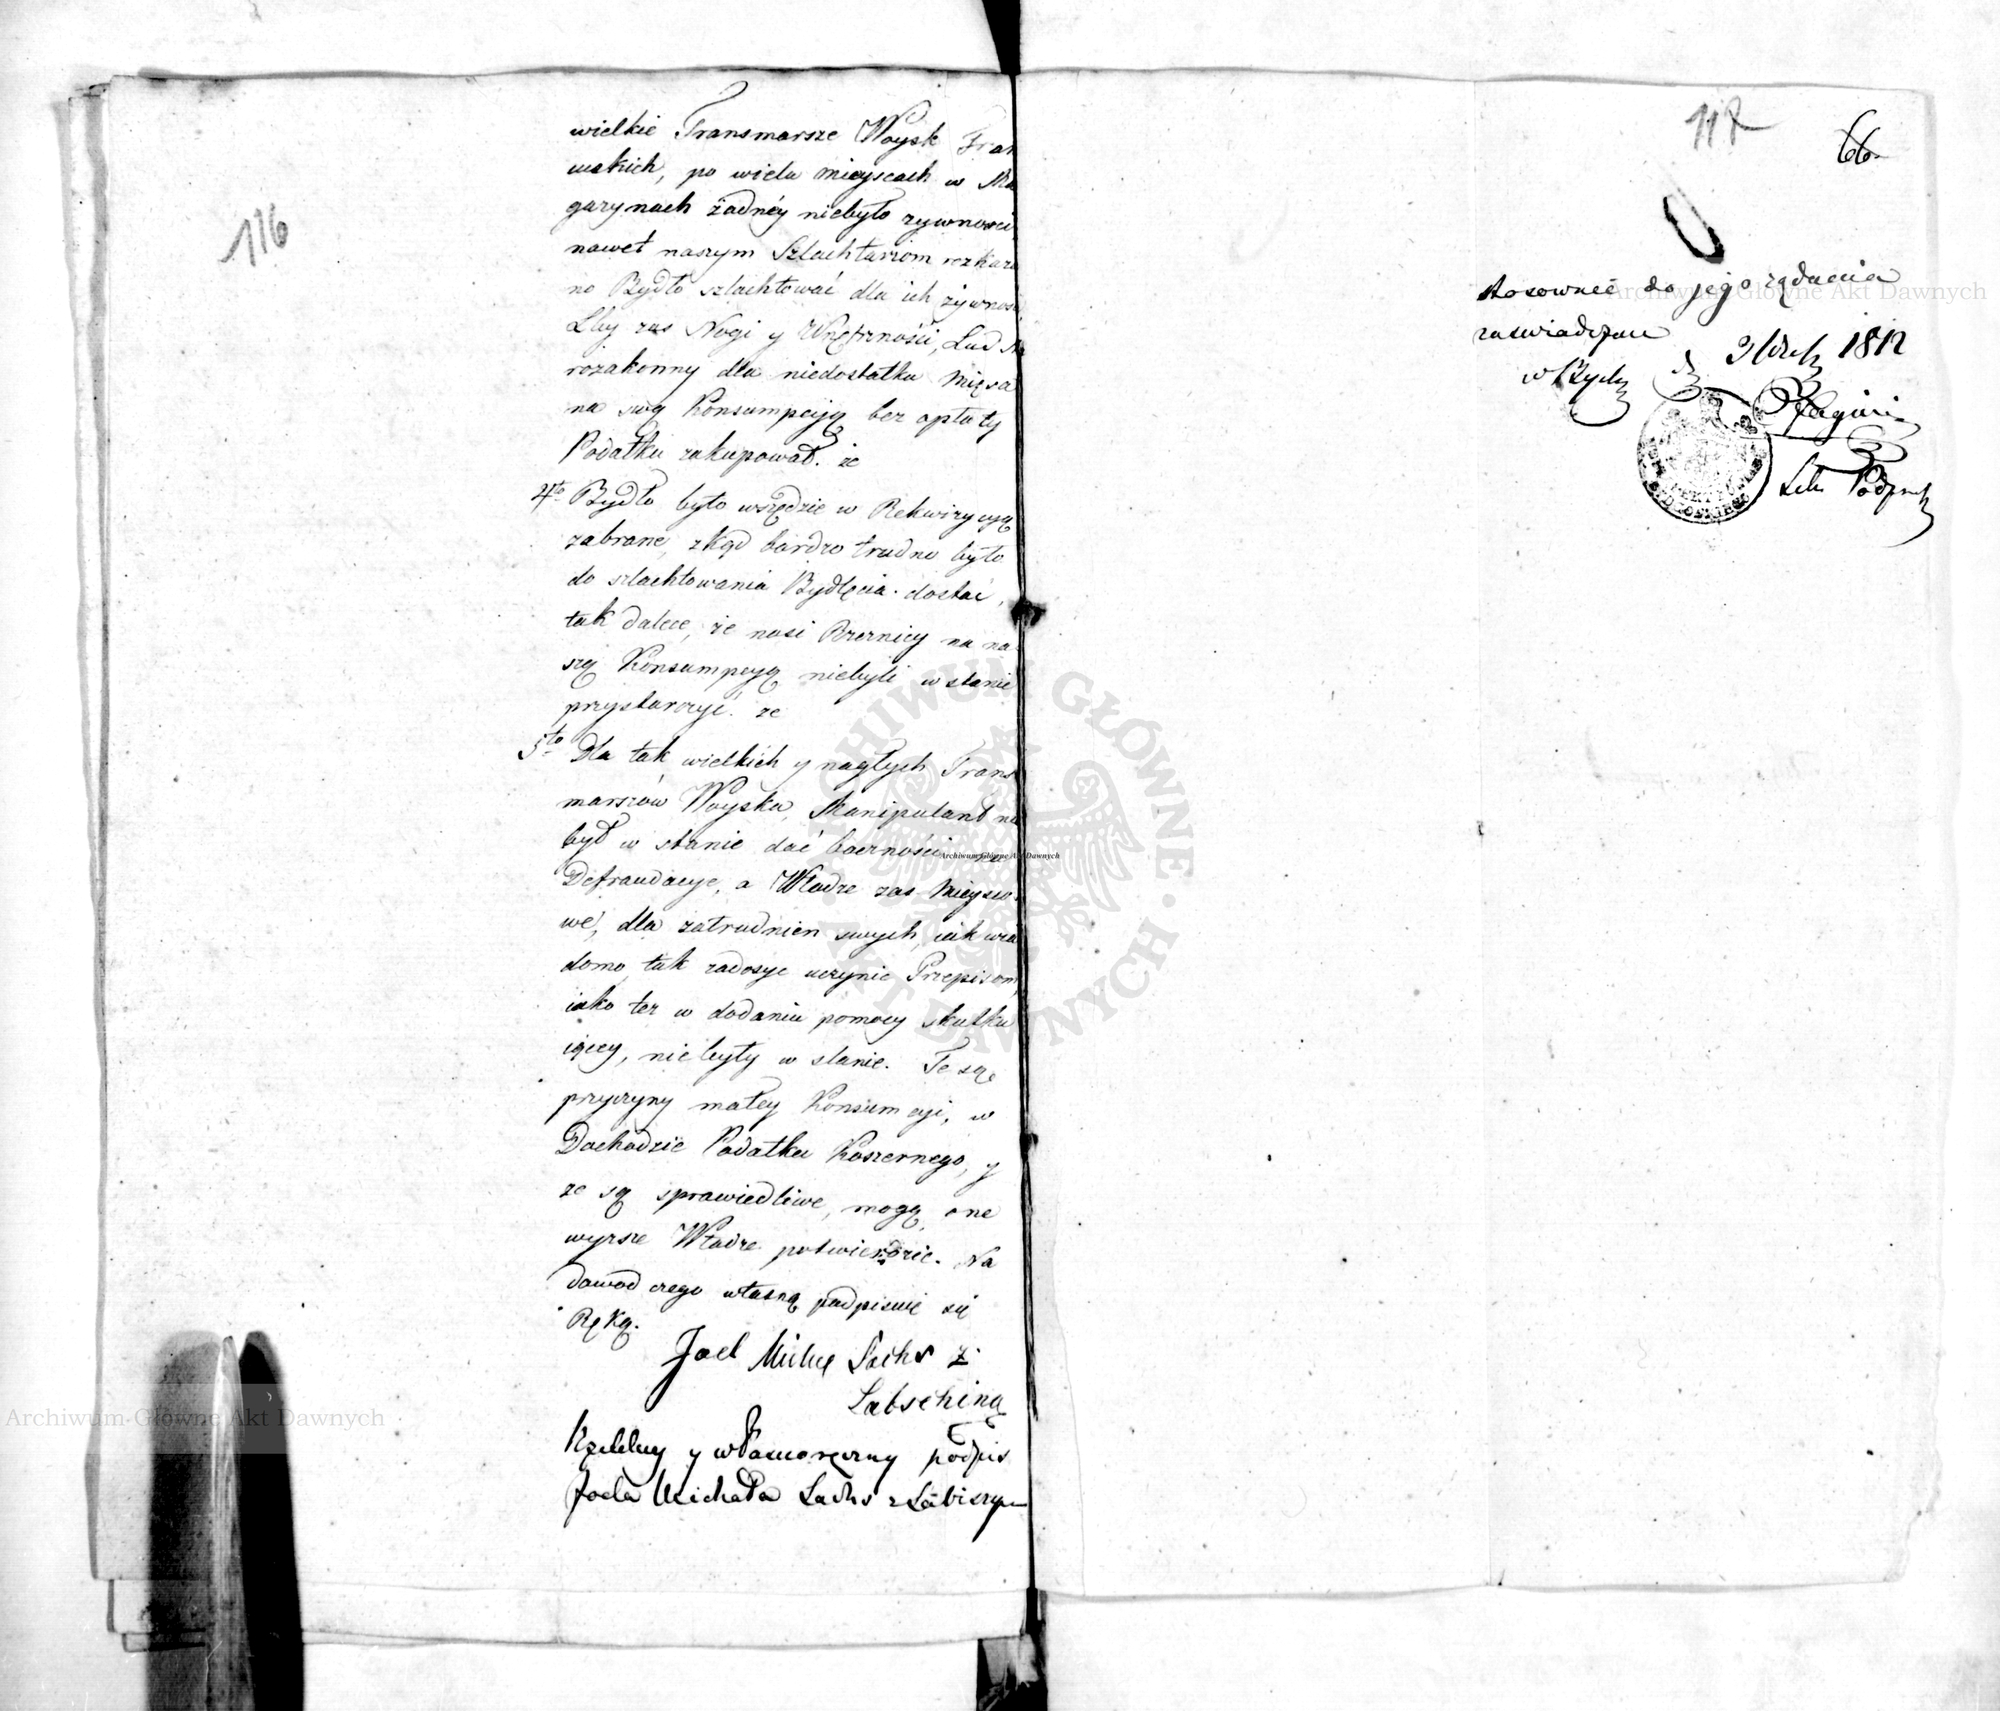 116
wielkie Transmarsze Woysk Fran
wskich, po wielu mieyscach w Ma
gazynach żadnéy niebyło zywnosci
nawet naszym Szlachtarzom rozkaza
no Bydło szlachtować dla ich żywnosc
Lby zas Nogi y Wnętrzności, Lud
rozakonny dla niedostatku Mięsa
na swą Konsumpcyją bez opłaty
Podatku zakupował. ze
4to Bydło było wszędzie w Rekwizycyą
zabrane, zkąd bardzo trudno było
do szlachtowania Bydlęcia dostać,
tak dalece, że nasi Rzeznicy na na
szą Konsumpcyą niebyli w stanie
przystarczyć. ze
5to Dla tak wielkich y nagłych Trans
marszów Woyska, Manipulant nie
był w stanie dać bacznosci na
Defraudacye, a Władze zas Mieysco
we, dla zatrudnien swych, iak wia
domo, tak zadosyc uczynic Przepisom,
iako tez w dodaniu pomocy skutku
iącey, nie były w stanie. Te są
przyczyny małey Konsumcyi, w
Dochodzie Podatku Koszernego, y
ze są sprawiedliwe, mogą one
wyzsze Władze potwierdzic. Na
dowod czego własną podpisuię się
Ręką.
Joel Michel Sachs z
Labschiną
Rzetelny y własnoręczny podpis
Joela Michała Sachs z Łabiszyna
117
66
stosownie do jego żądania
zaswiadczam
w Bydg d 1812
Sekr Podpref
Archiwum Główne Akt Dawnych
Archiwum Główne Akt Dawnych
Archiwum Główne Akt Dawnych
ARCHIWUM GŁÓWNE AKT DAWNYCH